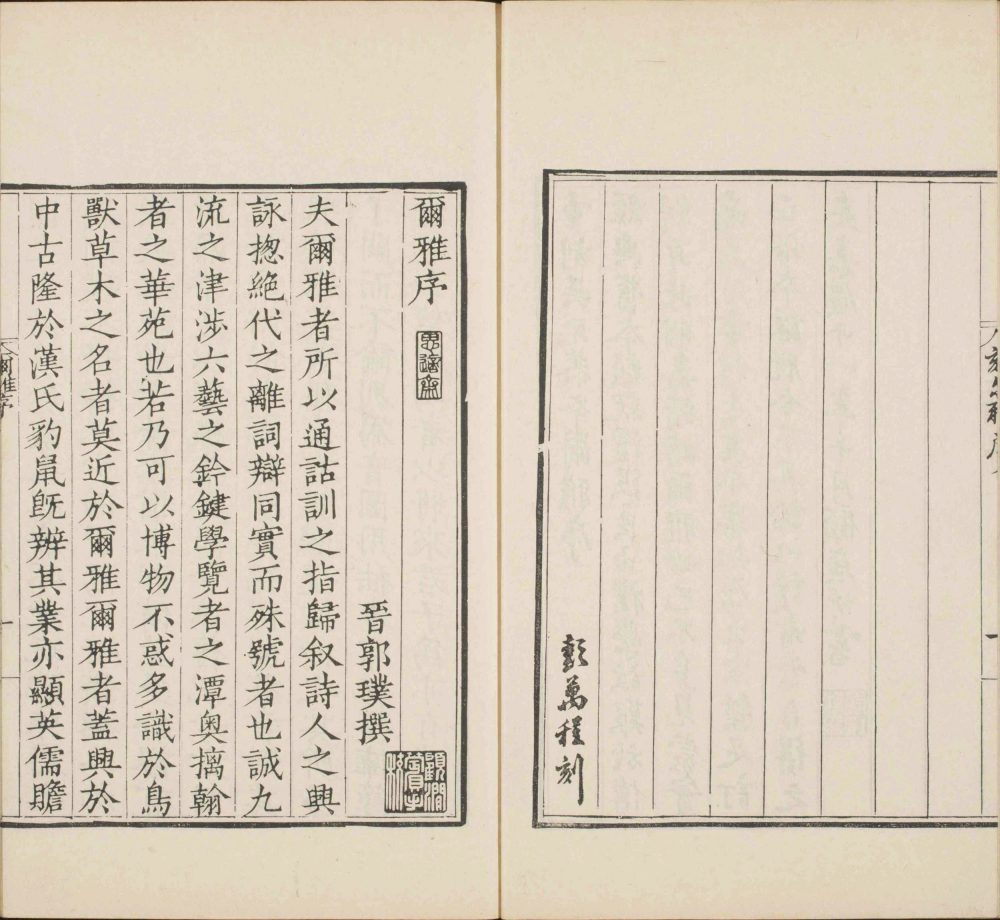 一
彭萬程刻
爾雅序
思適齋
晉郭璞撰
顧澗薲手校
夫爾雅者所以通詁訓之指歸叙詩人之興
詠揔絶代之離詞辯同實而殊號者也誠九
流之津涉六藝之鈐鍵學覽者之潭奧摛翰
者之華苑也若乃可以博物不惑多識於鳥
獸草木之名者莫近於爾雅爾雅者蓋興於
中古隆於漢氏豹鼠旣辨其業亦顯英儒贍
爾雅序
一